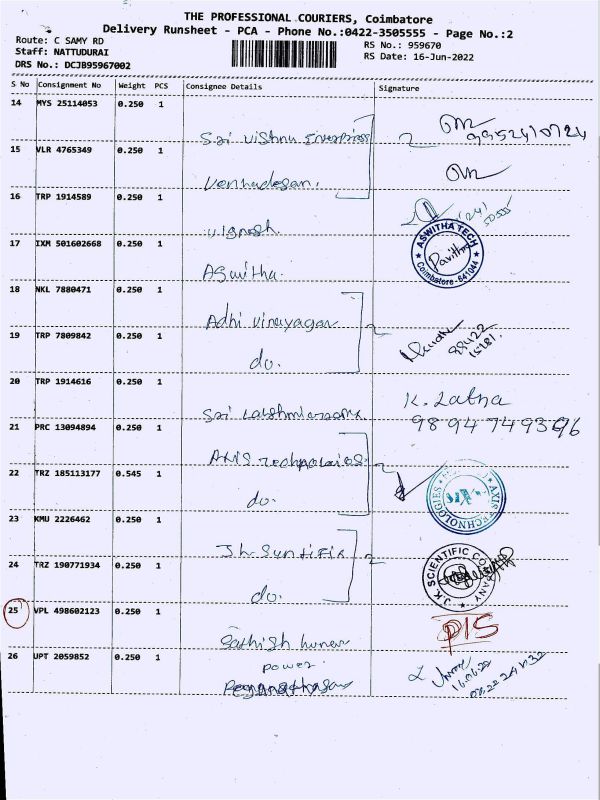 THE PROFESSIONAL COURIERS, Coimbatore
Delivery Runsheet - PCA - Phone No.:0422-3505555 - Page No.:2
Route: C SAMY RD
RS No.: 959670
Staff: NATTUDURAI
RS Date: 16-Jun-2022
DRS No.: DCJB95967002
S No Consignment No Weight PCS Consignee Details Signature
14 MYS 25114053 0.250 1
Sri Vishnu Enterprises
9952410724
15 VLR 4765349 0.250 1
Venkadesan.
16 TRP 1914589 0.250 1
Vignesh.
17 IXM 501602668 0.250 1
Aswitha.
ASWITHA TECH
Pavithra
Coimbatore-641044
18 NKL 7880471 0.250 1
Adhi Vinayagar
19 TRP 7809842 0.250 1
do.
20 TRP 1914616 0.250 1
Sri
K. Latha
9894749396
21 PRC 13094894 0.250 1
AXIS Technologies.
22 TRZ 185113177 0.545 1
do.
AXIS TECHNOLOGIES
23 KMU 2226462 0.250 1
24 TRZ 190771934 0.250 1
do.
J.K. SCIENTIFIC COMPANY
25 VPL 498602123 0.250 1
Sathish kumar
26 UPT 2059852 0.250 1
power
16.06.22